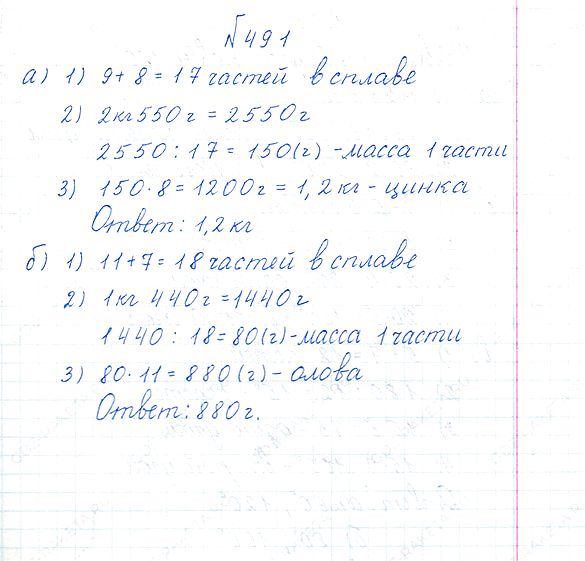 №491
а) 1) 9+8=17 частей в сплаве
2) 2кг550г = 2550г
2550:17=150(г) -масса 1 части
3) 150·8=1200г=1,2кг - цинка
Ответ: 1,2кг
б) 1) 11+7=18 частей в сплаве
2) 1кг 440г=1440г
1440:18=80(г)-масса 1 части
3) 80·11=880(г)- олова
Ответ: 880г.